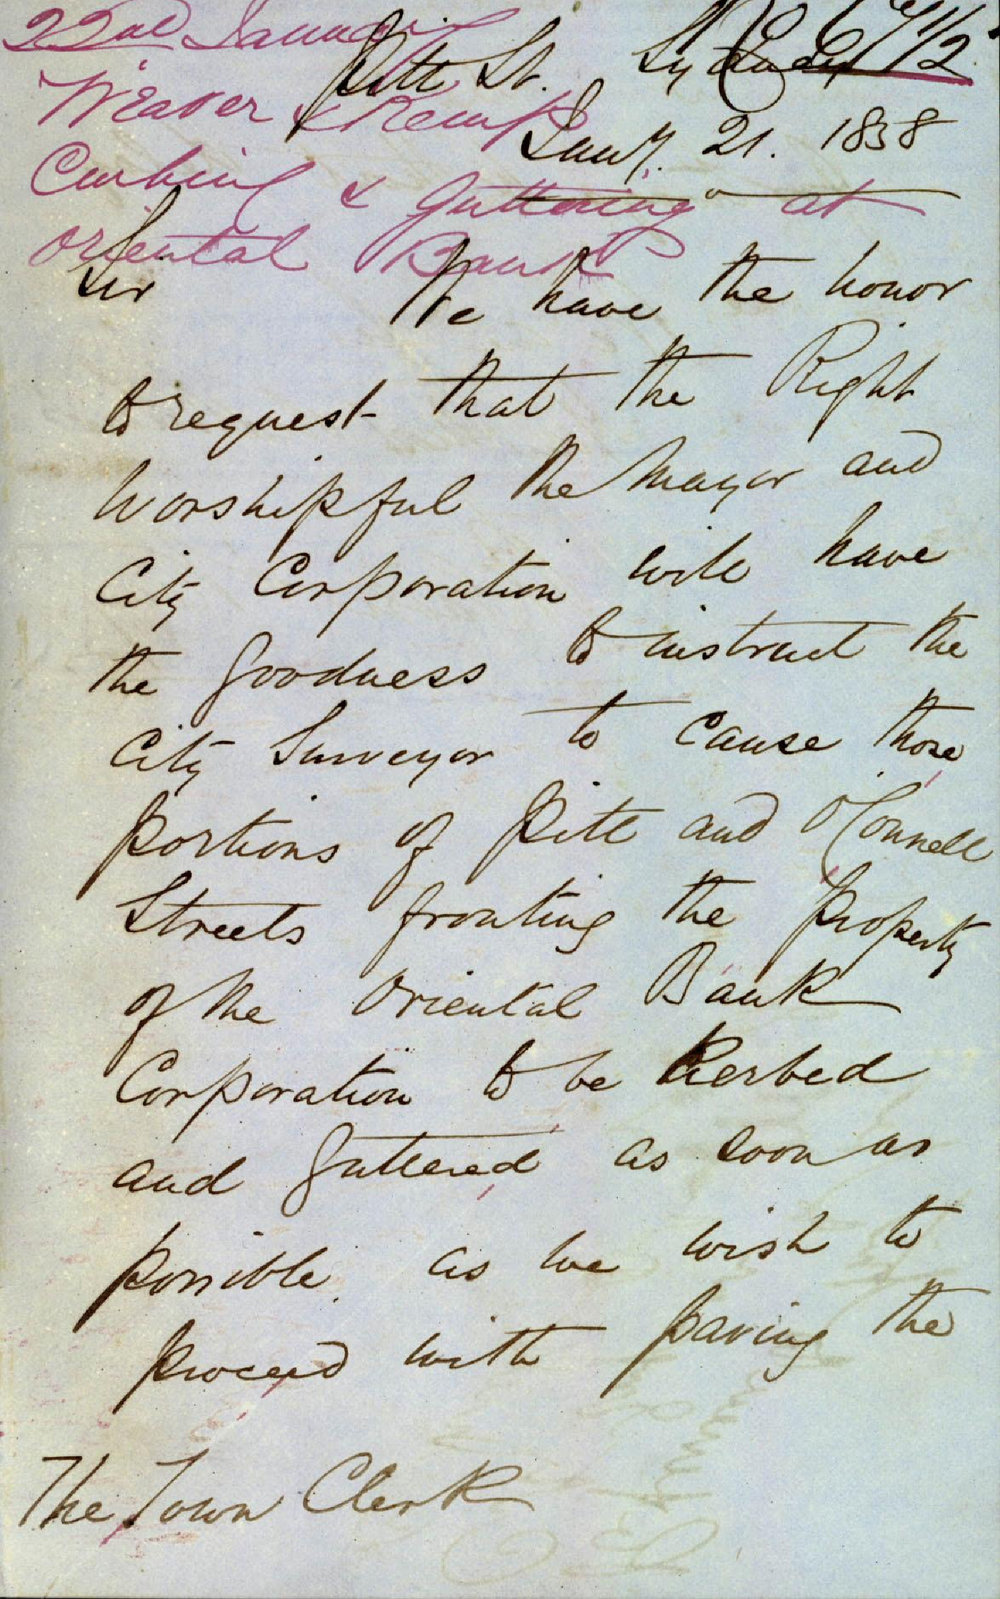 22nd January
Weaver & Kemp
Curbing & Guttering at
Oriental Bank
Pitt St. Sydney
Jany. 21. 1858
Sir
We have the honor
to request that the Right
Worshipful the Mayor and
City Corporation will have
the goodness to instruct the
City Surveyor to cause those
portions of Pitt and O'Connell
Streets fronting the property
of the Oriental Bank
Corporation to be Kerbed
and guttered as soon as
possible as we wish to
proceed with paving the
The Town Clerk